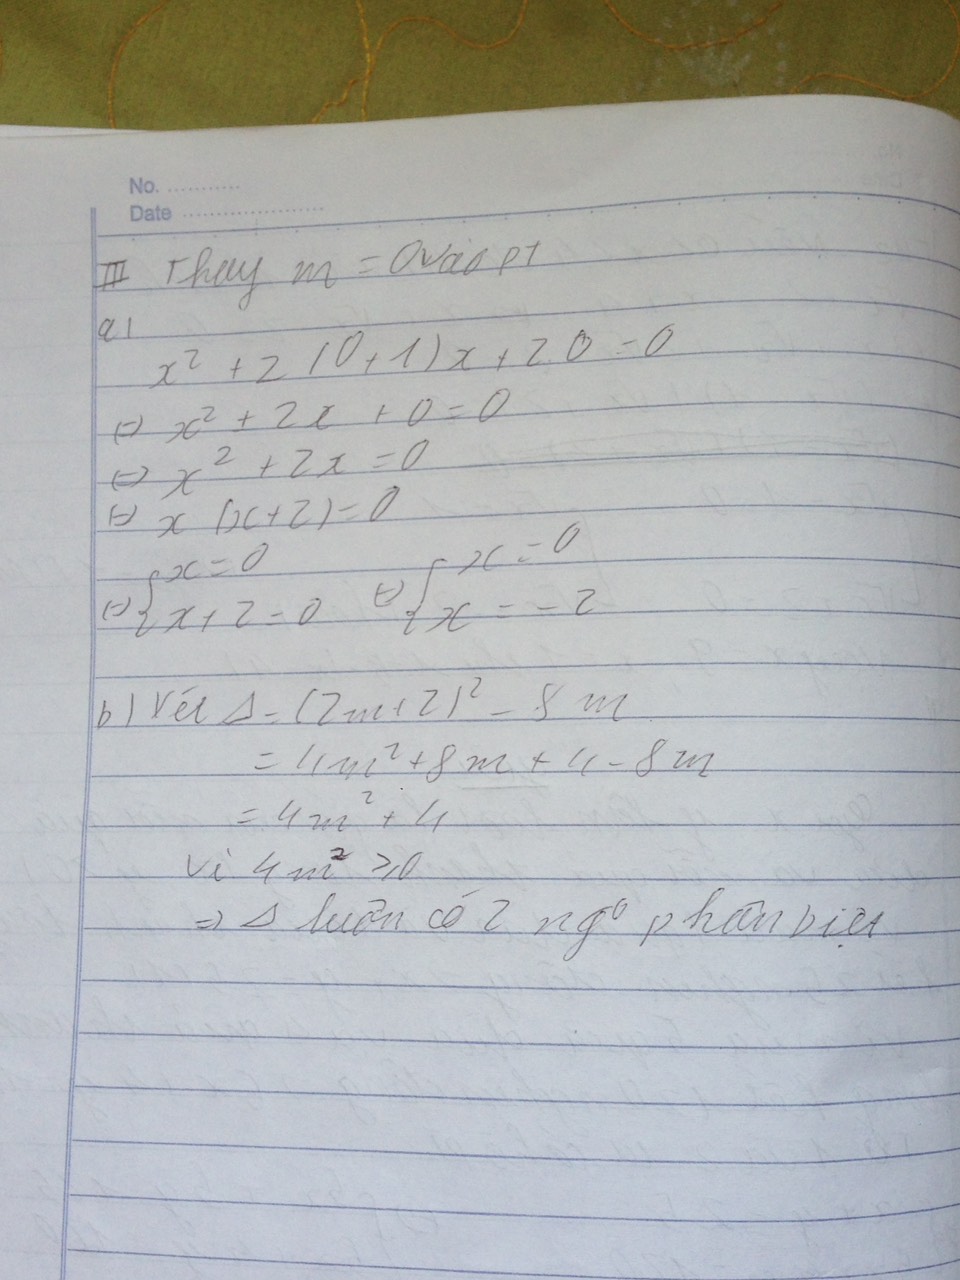 No. ...........
Date ......................
III Thay m = 0 vào pt
a)
x² + 2(0+1)x + 2.0 = 0
⇔ x² + 2x + 0 = 0
⇔ x² + 2x = 0
⇔ x(x+2) = 0
⇔ { x = 0 ⇔ { x = 0
x + 2 = 0 x = -2
b) Xét Δ = (2m+2)² - 8m
= 4m² + 8m + 4 - 8m
= 4m² + 4
Vì 4m² ≥ 0
⇒ Δ luôn có 2 ngº phân biệt